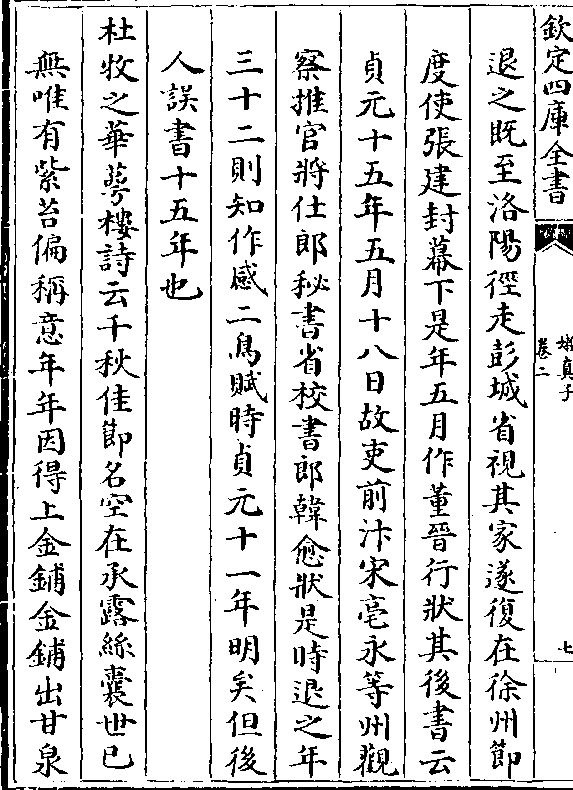 欽定四庫全書
嬾真子
卷二
七
退之既至洛陽徑走彭城省視其家遂復在徐州節
度使張建封幕下是年五月作董晉行狀其後書云
貞元十五年五月十八日故吏前汴宋亳永等州觀
察推官將仕郎秘書省校書郎韓愈狀是時退之年
三十二則知作感二鳥賦時貞元十一年明矣但後
人誤書十五年也
杜牧之華萼樓詩云千秋佳節名空在承露絲囊世已
無唯有紫苔偏稱意年年因得上金鋪金鋪出甘泉